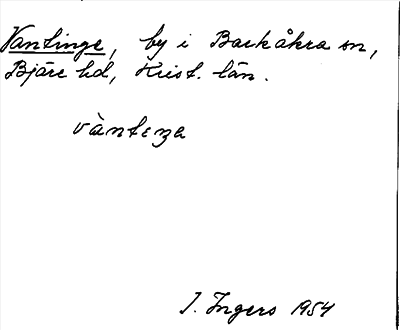 Vantinge, by i Barkåkra sn,
Bjäre hd, Krist. län.
I. Ingers 1954